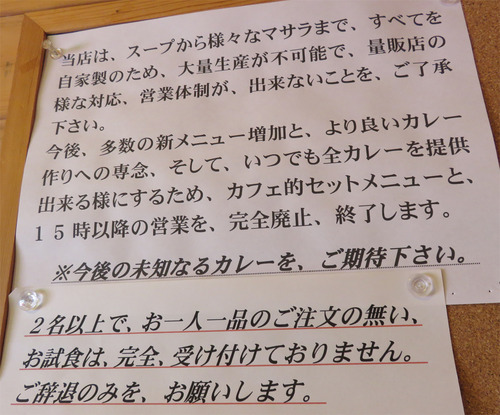 当店は、スープから様々なマサラまで、すべてを
自家製のため、大量生産が不可能で、量販店の
様な対応、営業体制が、出来ないことを、ご了承
下さい。
今後、多数の新メニュー増加と、より良いカレー
作りへの専念、そして、いつでも全カレーを提供
出来る様にするため、カフェ的セットメニューと、
１５時以降の営業を、完全廃止、終了します。
※今後の未知なるカレーを、ご期待下さい。
２名以上で、お一人一品のご注文の無い、
お試食は、完全、受け付けておりません。
ご辞退のみを、お願いします。